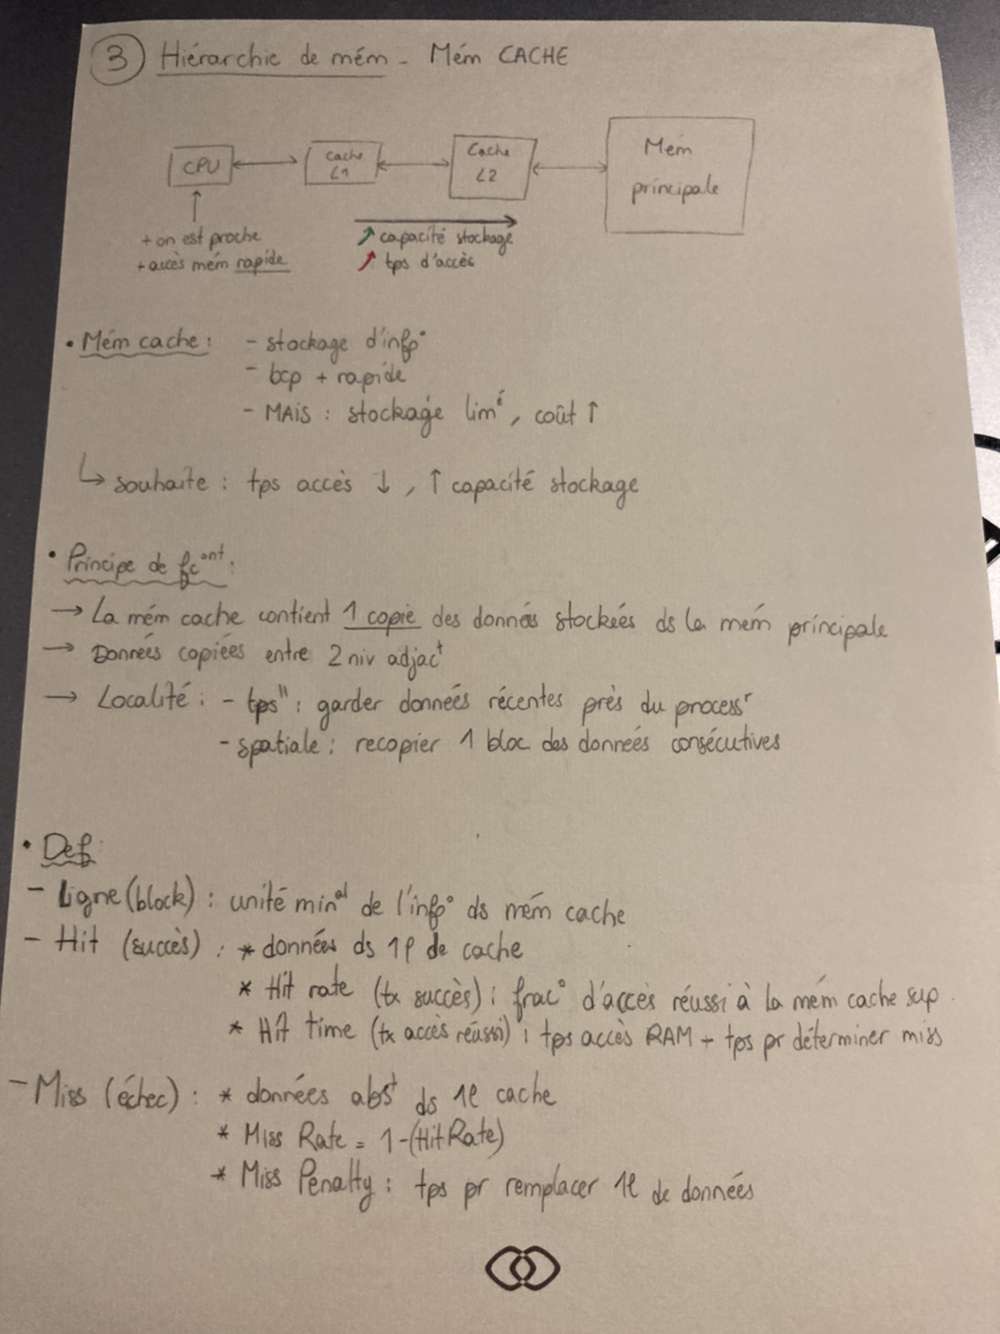 3 Hiérarchie de mém - Mém CACHE
CPU
Cache L1
Cache L2
Mém principale
+ on est proche
+ accès mém rapide
↗ capacité stockage
↗ tps d'accès
• Mém cache : - stockage d'info°
- bcp + rapide
- MAIS : stockage lim^é, coût ↑
↳ souhaite : tps accès ↓, ↑ capacité stockage
• Principe de fc^ont :
→ La mém cache contient 1 copie des données stockées ds la mém principale
→ Données copiées entre 2 niv adjac^t
→ Localité : - tps^ll : garder données récentes près du process^r
- spatiale : recopier 1 bloc des données consécutives
• Def :
- Ligne (block) : unité min^al de l'info° ds mém cache
- Hit (succès) : * données ds 1ℓ de cache
* Hit rate (tx succès) : frac° d'accès réussi à la mém cache sup.
* Hit time (tx accès réussi) : tps accès RAM + tps pr déterminer miss
- Miss (échec) : * données abs^t ds 1ℓ cache
* Miss Rate = 1-(Hit Rate)
* Miss Penalty : tps pr remplacer 1ℓ de données